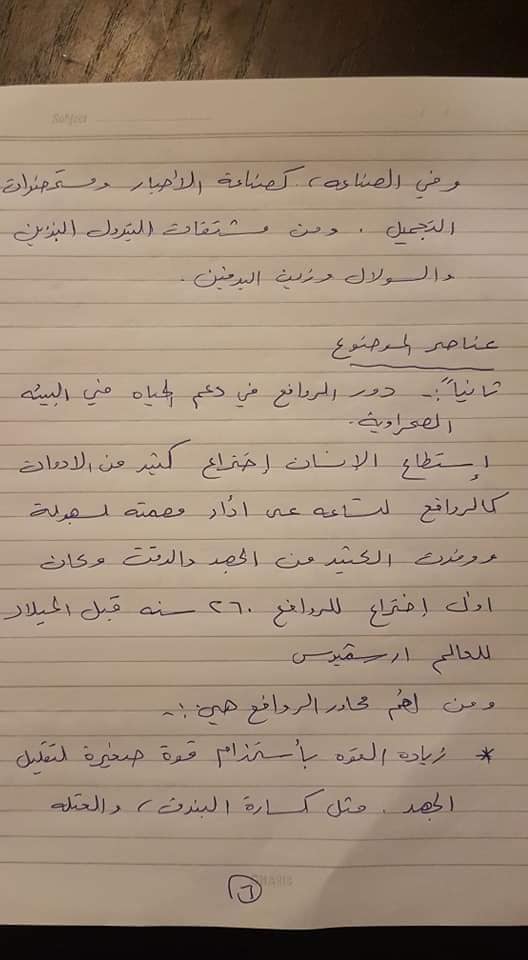 Subject
وفي الصناعة، كصناعة الأحبار ومستحضرات
التجميل. ومن مشتقات البترول البنزين
والسولار وزيت البرفين.
عناصر الموضوع
ثانياً:- دور الروافع في دعم الحياه في البيئه
الصحراوية.
إستطاع الإنسان إختراع كثير من الادوات
كالروافع لتساعه على اداء مهمته لسهولة
ووفرت الكثير من الجهد والوقت وكان
اول إختراع للروافع ٢٦٠ سنه قبل الميلاد
للعالم ارسقيدس
ومن اهم محاور الروافع هي:-
* زياده القوه بأستخدام قوة صغيرة لتقليل
الجهد. مثل كسارة البندق، والعتله
٦